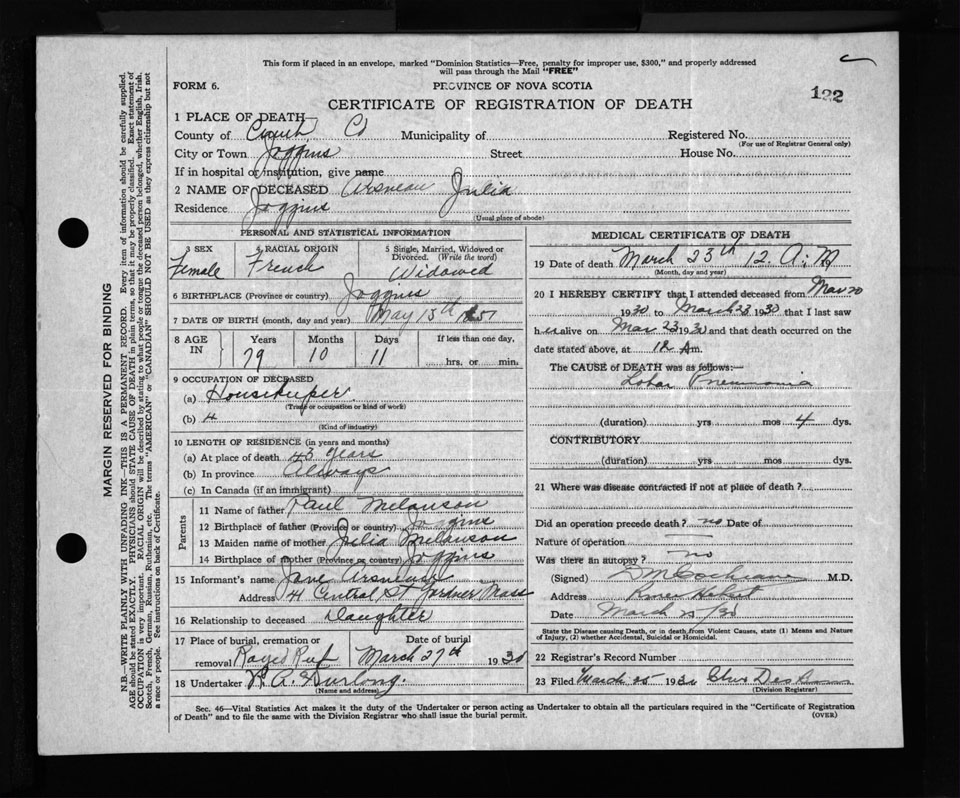 This form if placed in an envelope, marked "Dominion Statistics—Free, penalty for improper use, $300," and properly addressed
will pass through the Mail "FREE"
FORM 6.
PROVINCE OF NOVA SCOTIA
122
CERTIFICATE OF REGISTRATION OF DEATH
1 PLACE OF DEATH
County of Cumb Co Municipality of Registered No.
(For use of Registrar General only)
City or Town Joggins Street House No.
If in hospital or institution, give name
2 NAME OF DECEASED Arsneau Julia
Residence Joggins
(Usual place of abode)
PERSONAL AND STATISTICAL INFORMATION
3 SEX 4 RACIAL ORIGIN 5 Single, Married, Widowed or Divorced. (Write the word)
Female French Widowed
6 BIRTHPLACE (Province or country) Joggins
7 DATE OF BIRTH (month, day and year) May 13th
8 AGE IN Years Months Days If less than one day,
79 10 11 hrs. or min.
9 OCCUPATION OF DECEASED
(a) Housekeeper
(Trade or occupation or kind of work)
(b)
(Kind of industry)
10 LENGTH OF RESIDENCE (in years and months)
(a) At place of death 43 years
(b) In province Always
(c) In Canada (if an immigrant)
Parents
11 Name of father Paul Melanson
12 Birthplace of father (Province or country) Joggins
13 Maiden name of mother Julia Melanson
14 Birthplace of mother (Province or country) Joggins
15 Informant's name Jane Arsneau
Address 41 Central St Gardner Mass
16 Relationship to deceased Daughter
17 Place of burial, cremation or removal Date of burial
March 27th 1930
18 Undertaker
(Name and address)
MEDICAL CERTIFICATE OF DEATH
19 Date of death March 23th 12. A.M
(Month, day and year)
20 I HEREBY CERTIFY that I attended deceased from Mar 20
1930 to March 23 1930 that I last saw
h er alive on Mar 23 1930 and that death occurred on
date stated above, at 12 Am.
The CAUSE of DEATH was as follows:—
Lobar Pneumonia
(duration) yrs mos 4 dys.
CONTRIBUTORY
(duration) yrs mos dys.
21 Where was disease contracted if not at place of death?
Did an operation precede death? no Date of
Nature of operation —
Was there an autopsy? no
(Signed) D M Cochrane M.D.
Address River Hebert
Date March 25/30
State the Disease causing Death, or in death from Violent Causes, state (1) Means and Nature
of Injury, (2) whether Accidental, Suicidal or Homicidal.
22 Registrar's Record Number
23 Filed March 25 1930
(Division Registrar)
Sec. 46—Vital Statistics Act makes it the duty of the Undertaker or person acting as Undertaker to obtain all the particulars required in the "Certificate of Registration
of Death" and to file the same with the Division Registrar who shall issue the burial permit.
(OVER)
MARGIN RESERVED FOR BINDING
N.B.—WRITE PLAINLY WITH UNFADING INK—THIS IS A PERMANENT RECORD. Every item of information should be carefully supplied.
AGE should be stated EXACTLY. PHYSICIANS should STATE CAUSE OF DEATH in plain terms, so that it may be properly classified. Exact statement of
OCCUPATION is very important. RACIAL ORIGIN will be described by stating to what people or tongue the deceased person belonged, whether English, Irish,
Scotch, French, German, Russian, Ruthenian, etc. The terms "AMERICAN" or "CANADIAN" SHOULD NOT BE USED as they express citizenship but not
a race or people. See instructions on back of Certificate.